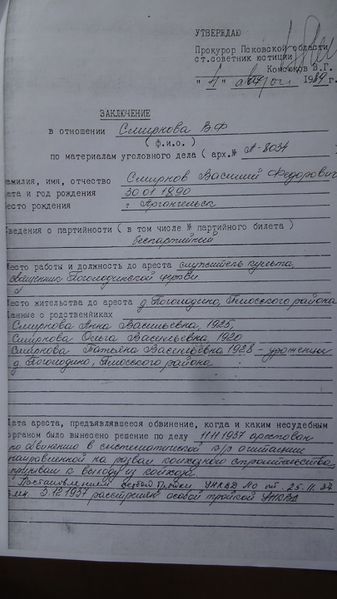 УТВЕРЖДАЮ
Прокурор Псковской области
ст.советник юстиции
Комсюков В.Г.
" 4 " 1989 г.
ЗАКЛЮЧЕНИЕ
в отношении Смирнова В.Ф
( ф.и.о. )
по материалам уголовного дела ( арх.№ А-8034
амилия, имя, отчество Смирнов Василий Федорович
ата и год рождения 30 01 1890
есто рождения г Архангельск
ведения о партийности ( в том числе № партийного билета )
беспартийный
есто работы и должность до ареста служитель культа,
священник Погощинской церкви
есто жительства до ареста д района
анные о родственниках
Смирнова Анна Васильевна, 1925,
Смирнова Ольга Васильевна 1920
Смирнова Татьяна Васильевна 1928 - уроженцы
д. района
ата ареста, предъявлявшееся обвинение, когда и каким несудебным
органом было вынесено решение по делу 11.11.1937 арестован
по обвинению в систематической к/р агитации
направленной на развал колхозного строительства
призывал к выходу из колхоза
Постановлением УНКВД ЛО от 25.11.37
3.12.1937 расстрелян особой тройкой УНКВД